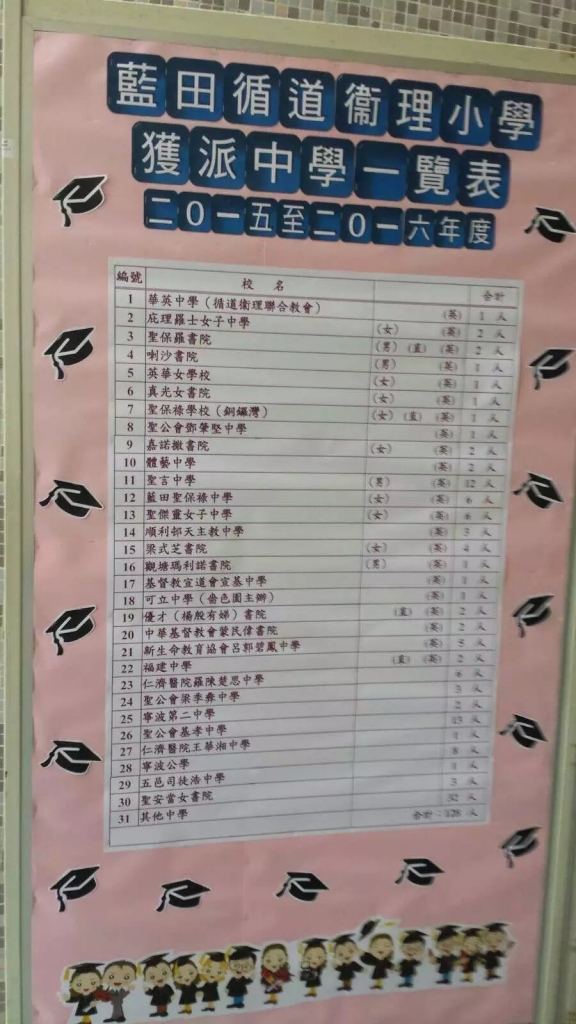 藍田循道衞理小學
獲派中學一覽表
二０一五至二０一六年度
編號 校 名 合計
1 華英中學（循道衞理聯合教會） （英） 1 人
2 庇理羅士女子中學 （女） （英） 2 人
3 聖保羅書院 （男）（直）（英） 2 人
4 喇沙書院 （男） （英） 1 人
5 英華女學校 （女） （英） 1 人
6 真光女書院 （女） （英） 1 人
7 聖保祿學校（銅鑼灣） （女）（直）（英） 1 人
8 聖公會鄧肇堅中學 （英） 1 人
9 嘉諾撒書院 （女） （英） 2 人
10 體藝中學 （英） 2 人
11 聖言中學 （男） （英） 12 人
12 藍田聖保祿中學 （女） （英） 6 人
13 聖傑靈女子中學 （女） （英） 6 人
14 順利邨天主教中學 （英） 3 人
15 梁式芝書院 （女） （英） 4 人
16 觀塘瑪利諾書院 （男） （英） 1 人
17 基督教宣道會宣基中學 （英） 1 人
18 可立中學（嗇色園主辦） （英） 1 人
19 優才（楊殷有娣）書院 （直）（英） 2 人
20 中華基督教會蒙民偉書院 （英） 2 人
21 新生命教育協會呂郭碧鳳中學 （英） 5 人
22 福建中學 （直）（英） 2 人
23 仁濟醫院羅陳楚思中學 6 人
24 聖公會梁季彝中學 3 人
25 寧波第二中學 2 人
26 聖公會基孝中學 13 人
27 仁濟醫院王華湘中學 1 人
28 寧波公學 8 人
29 五邑司徒浩中學 1 人
30 聖安當女書院 3 人
31 其他中學 32 人
合計：128 人